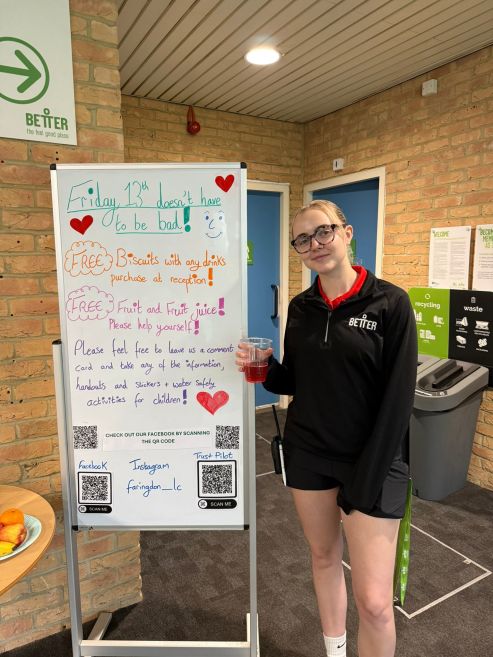 BETTER
the feel good place
Friday 13th doesn't have
to be bad!
FREE Biscuits with any drinks
purchase at reception!
FREE Fruit and Fruit juice!
Please help yourself!
Please feel free to leave us a comment
card and take any of the information,
handouts and stickers + water safety
activities for children!
CHECK OUT OUR FACEBOOK BY SCANNING
THE QR CODE
Facebook
SCAN ME
Instagram
faringdon__lc
Trust Pilot
SCAN ME
BETTER
WELCOME
BECOME
MEMBER
recycling
waste